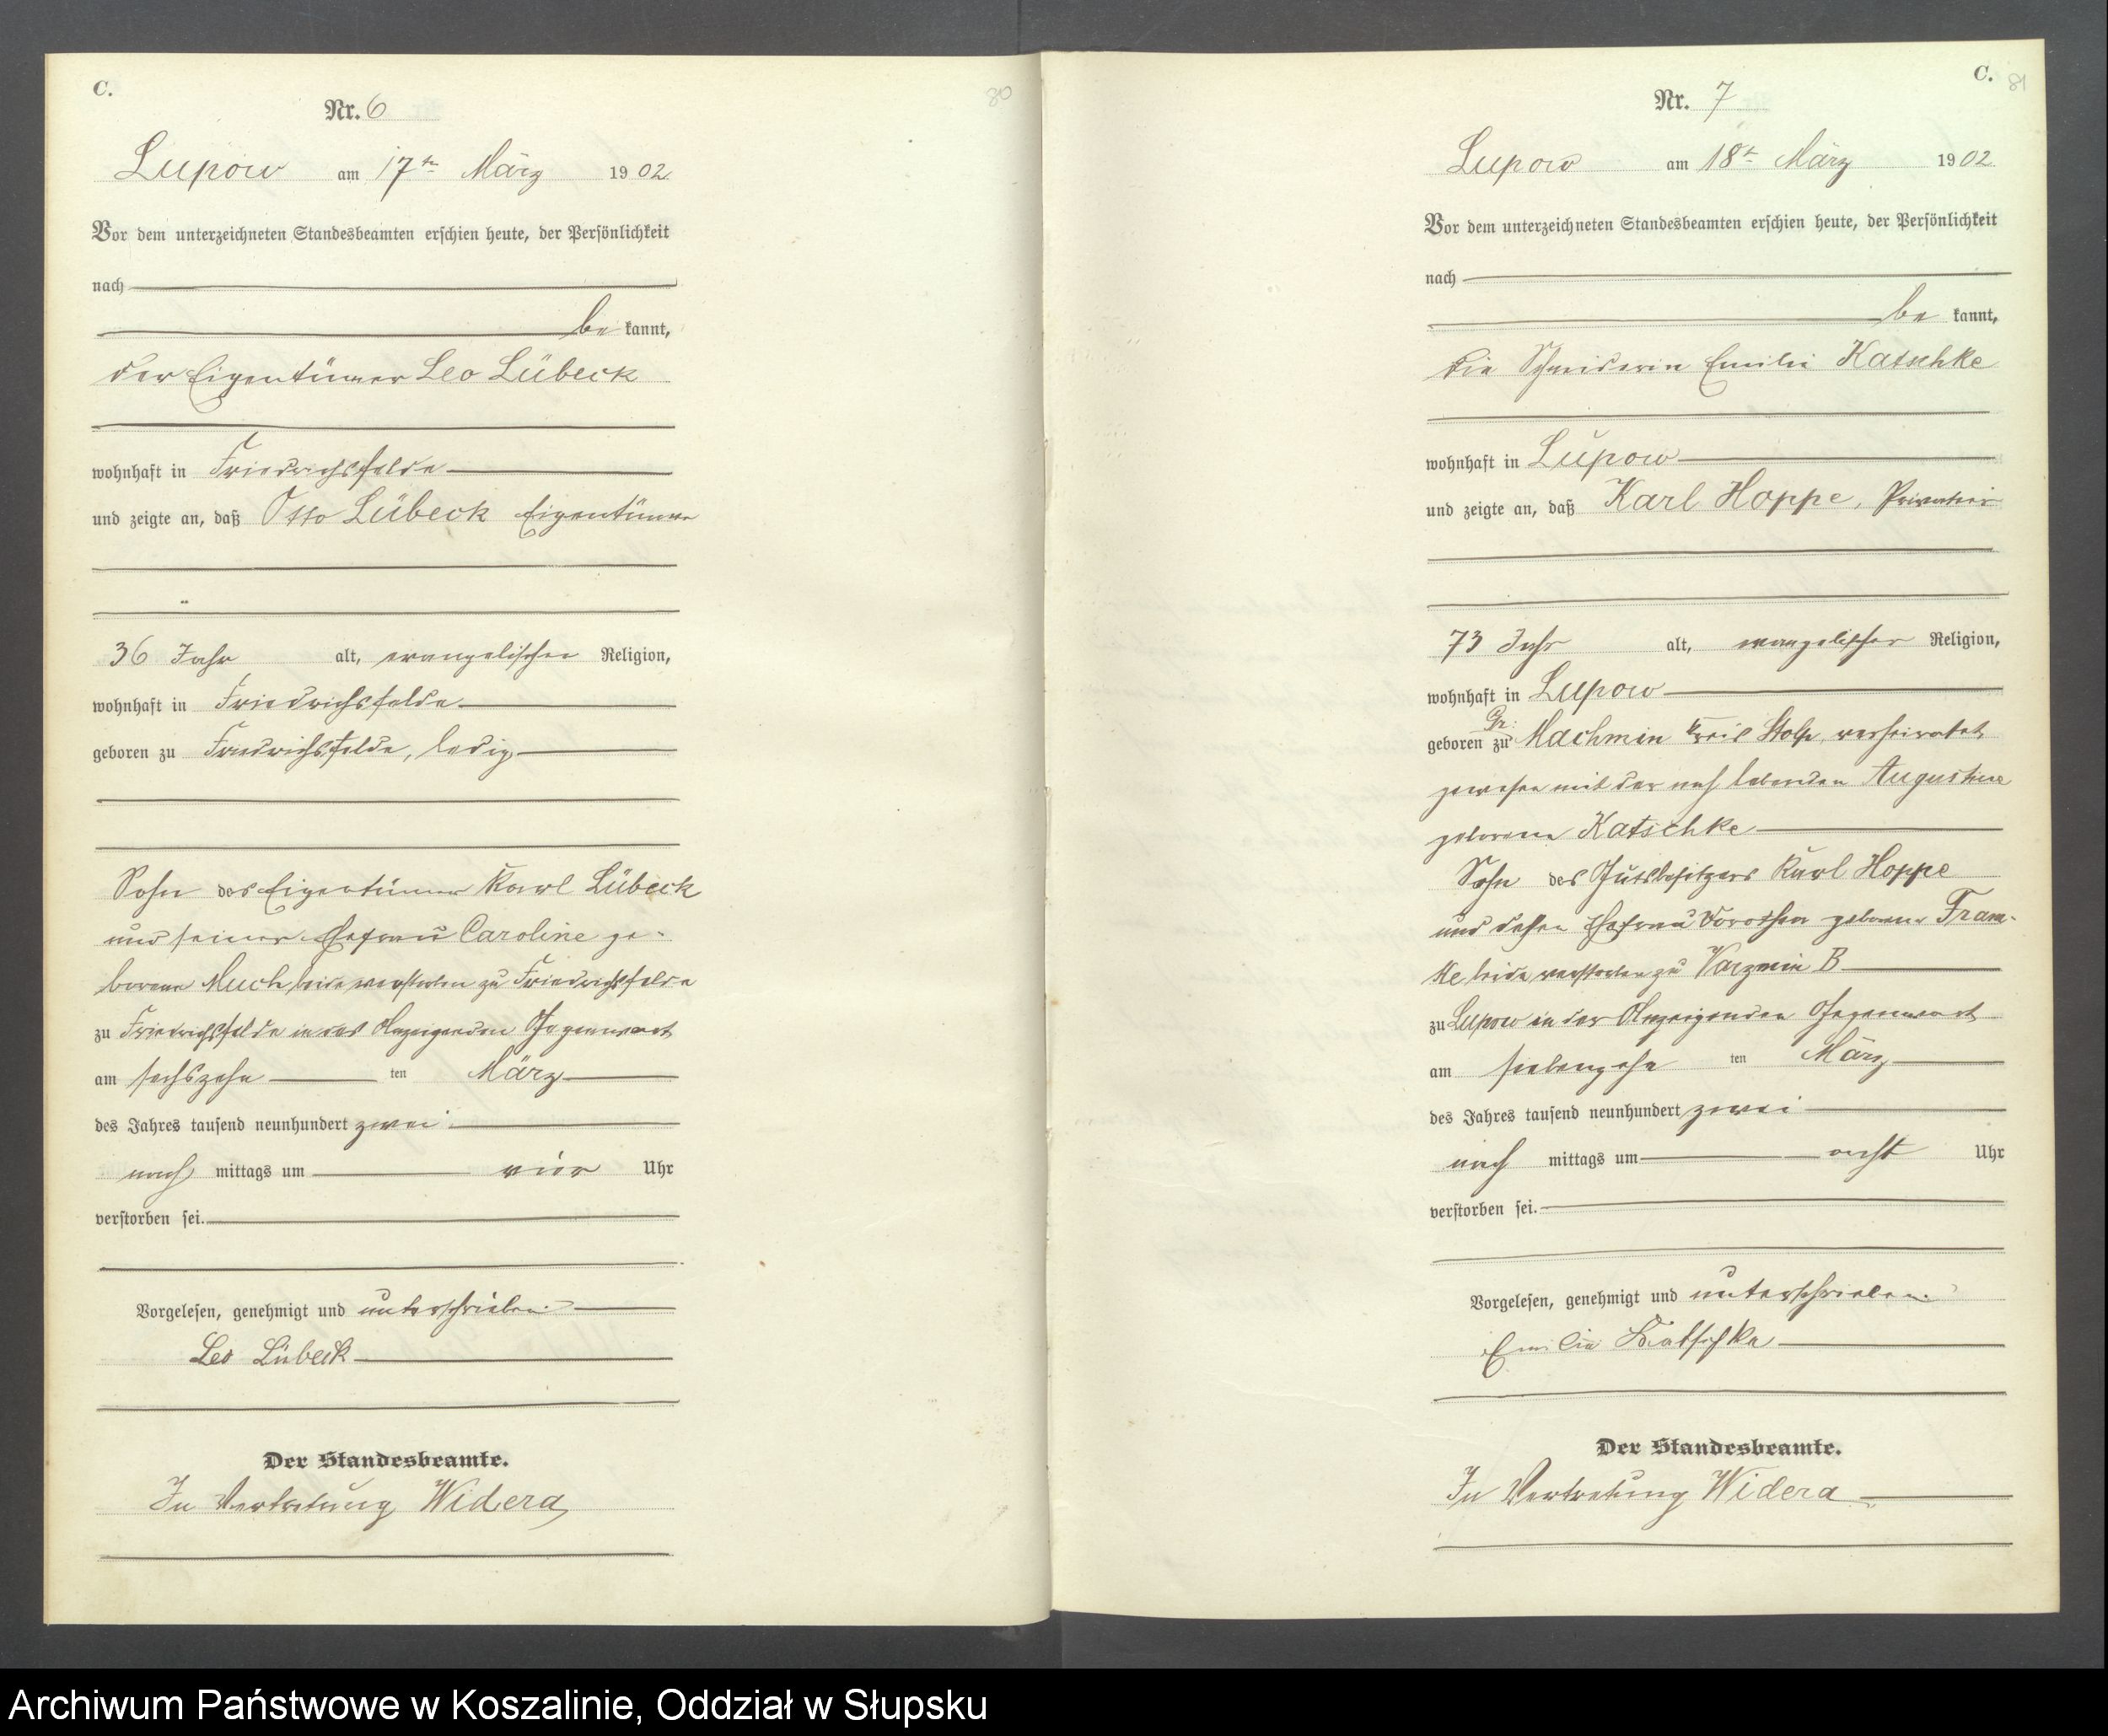 C.
80
Nr. 6
Lupow am 17ten März 1902
Vor dem unterzeichneten Standesbeamten erschien heute, der Persönlichkeit
nach
be kannt,
der Eigentümer Leo Lübeck
wohnhaft in Friedrichsfelde
und zeigte an, daß Otto Lübeck Eigentümer
36 Jahr alt, evangelischer Religion,
wohnhaft in Friedrichsfelde
geboren zu Friedrichsfelde, ledig
Sohn des Eigentümer Karl Lübeck
und seiner Ehefrau Caroline ge-
borene Much beide verstorben zu Friedrichsfelde
zu Friedrichsfelde in des Anzeigenden Gegenwart
am sechszehn ten März
des Jahres tausend neunhundert zwei
nach mittags um vier Uhr
verstorben sei.
Vorgelesen, genehmigt und unterschrieben
Leo Lübeck
Der Standesbeamte.
In Vertretung Widera
C.
81
Nr. 7
Lupow am 18t März 1902
Vor dem unterzeichneten Standesbeamten erschien heute, der Persönlichkeit
nach
be kannt,
die Schneiderin Emilie Katschke
wohnhaft in Lupow
und zeigte an, daß Karl Hoppe, Privatier
73 Jahr alt, evangelischer Religion,
wohnhaft in Lupow
geboren zu Gr: Machmin Kreis Stolp, verheiratet
gewesen mit der noch lebenden Augustine
geborene Katschke
Sohn des Gutsbesitzers Karl Hoppe
und dessen Ehefrau Dorothea geborene Fram-
ke beide verstorben zu Varzmin B
zu Lupow in der Anzeigenden Gegenwart
am siebenzehn ten März
des Jahres tausend neunhundert zwei
nach mittags um acht Uhr
verstorben sei.
Vorgelesen, genehmigt und unterschrieben
Emilie Katschke
Der Standesbeamte.
In Vertretung Widera
Archiwum Państwowe w Koszalinie, Oddział w Słupsku